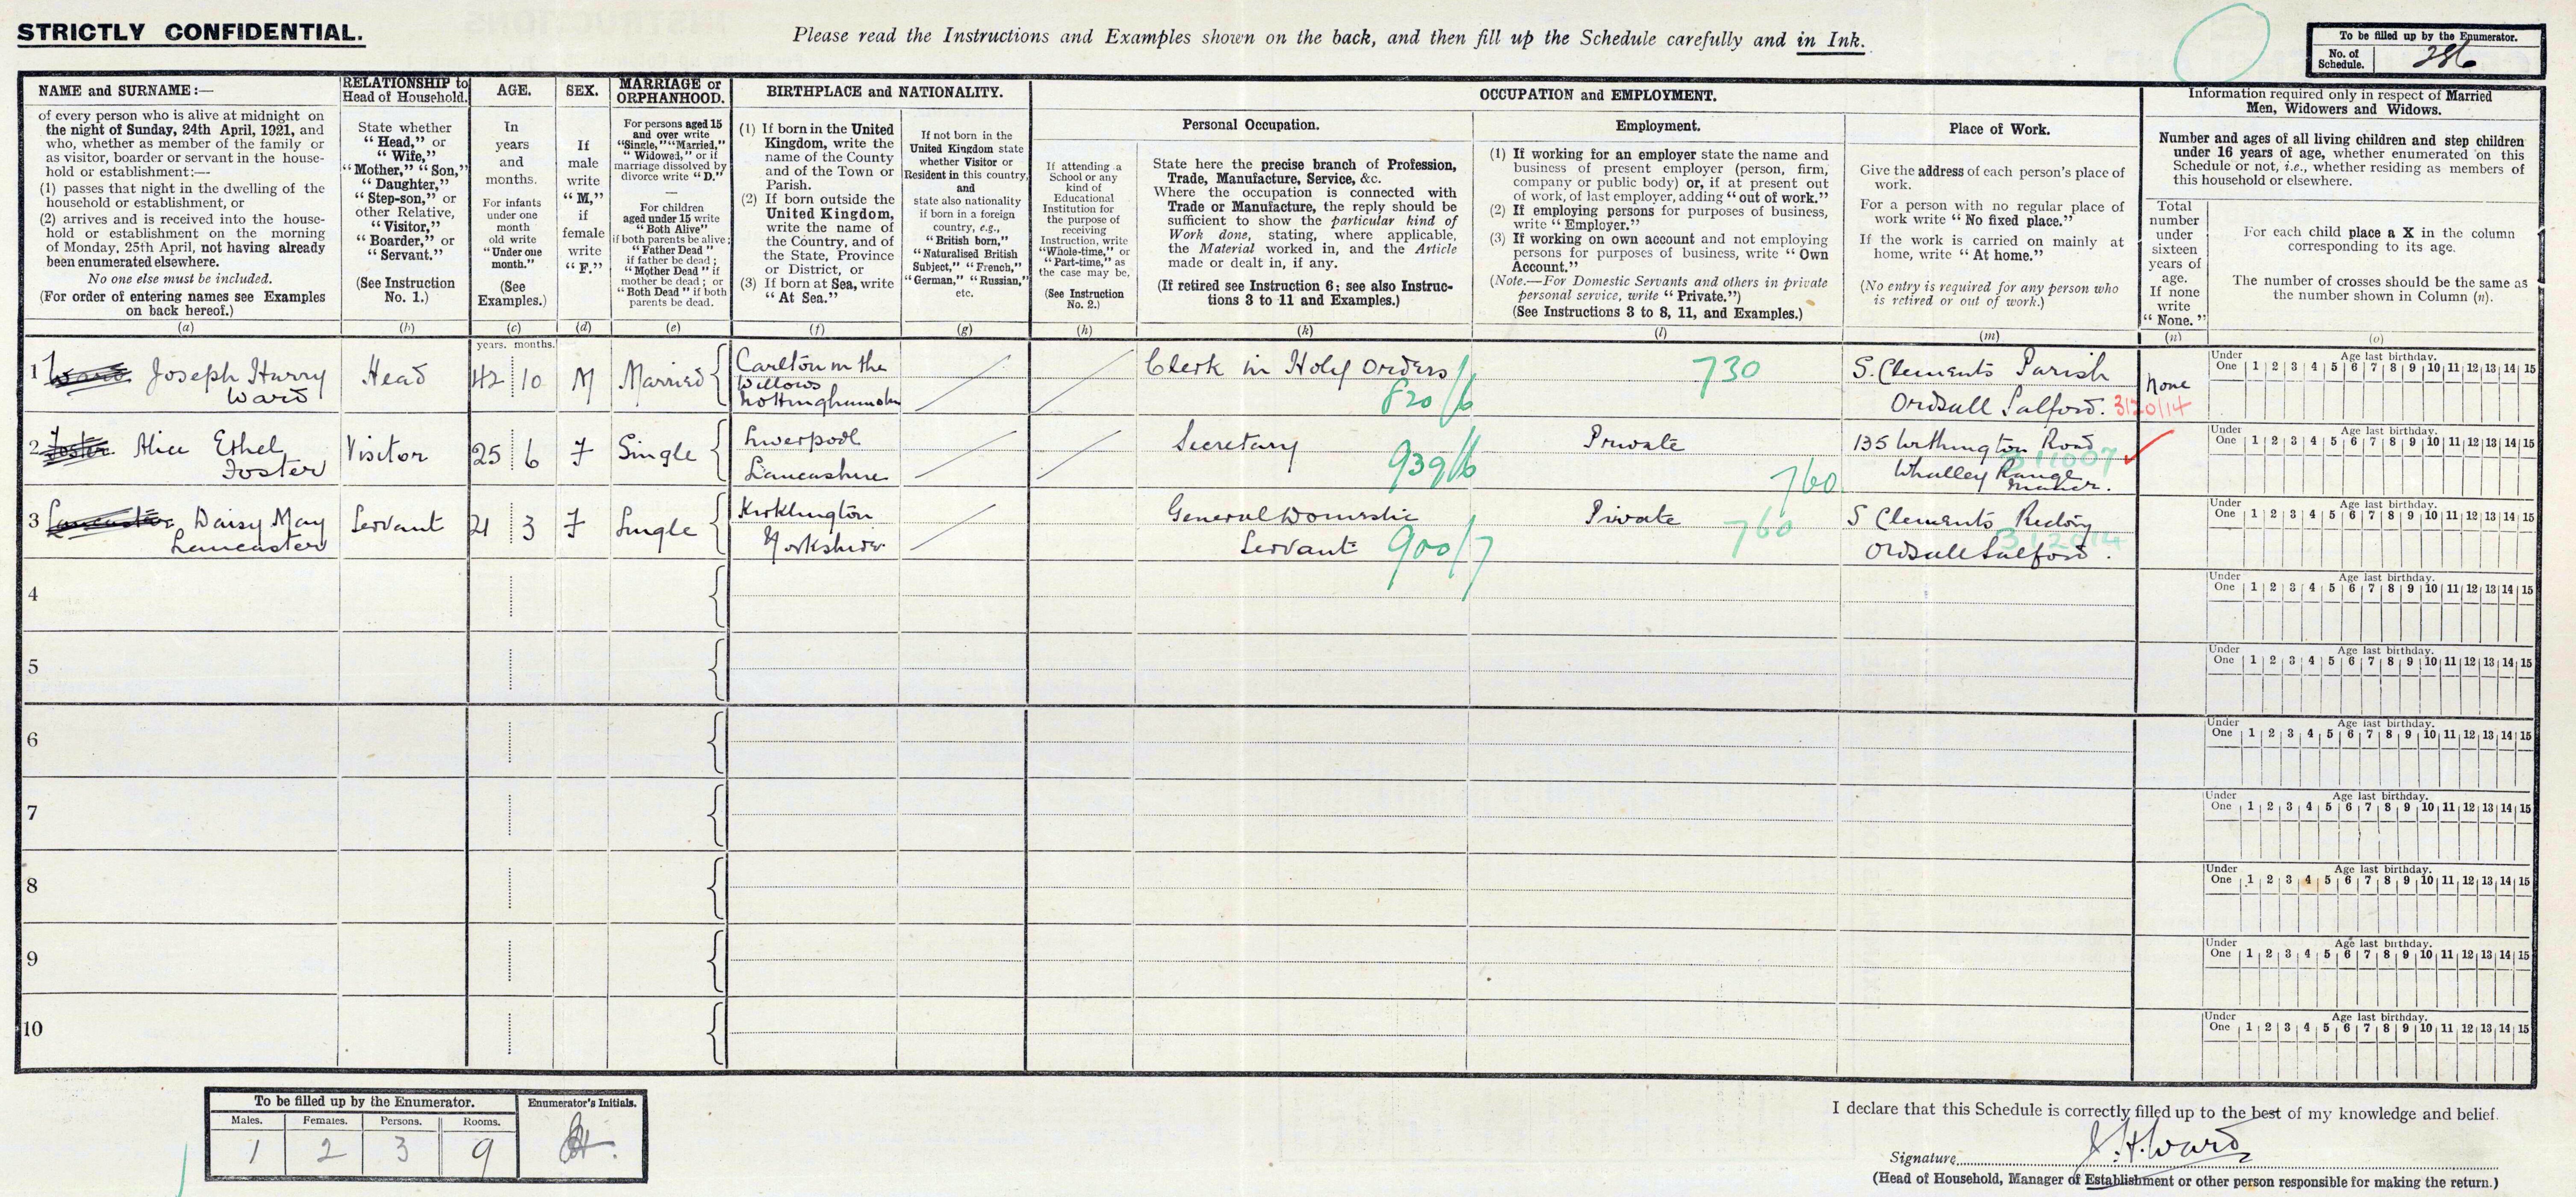 STRICTLY CONFIDENTIAL.
Please read the Instructions and Examples shown on the back, and then fill up the Schedule carefully and in Ink.
To be filled up by the Enumerator.
No. of Schedule. 286
NAME and SURNAME:—
of every person who is alive at midnight on
the night of Sunday, 24th April, 1921, and
who, whether as member of the family or
as visitor, boarder or servant in the house-
hold or establishment:—
(1) passes that night in the dwelling of the
household or establishment, or
(2) arrives and is received into the house-
hold or establishment on the morning
of Monday, 25th April, not having already
been enumerated elsewhere.
No one else must be included.
(For order of entering names see Examples
on back hereof.)
(a)
RELATIONSHIP to
Head of Household.
State whether
"Head," or
"Wife,"
"Mother," "Son,"
"Daughter,"
"Step-son," or
other Relative,
"Visitor,"
"Boarder," or
"Servant."
(See Instruction
No. 1.)
(b)
AGE.
In
years
and
months.
For infants
under one
month
old write
"Under one
month."
(See
Examples.)
(c)
SEX.
If
male
write
"M,"
if
female
write
"F."
(d)
MARRIAGE or
ORPHANHOOD.
For persons aged 15
and over write
"Single," "Married,"
"Widowed," or if
marriage dissolved by
divorce write "D."
For children
aged under 15 write
"Both Alive"
if both parents be alive;
"Father Dead"
if father be dead;
"Mother Dead" if
mother be dead; or
"Both Dead" if both
parents be dead.
(e)
BIRTHPLACE and NATIONALITY.
(1) If born in the United
Kingdom, write the
name of the County
and of the Town or
Parish.
(2) If born outside the
United Kingdom,
write the name of
the Country, and of
the State, Province
or District, or
(3) If born at Sea, write
"At Sea."
(f)
If not born in the
United Kingdom state
whether Visitor or
Resident in this country,
and
state also nationality
if born in a foreign
country, e.g.,
"British born,"
"Naturalised British
Subject," "French,"
"German," "Russian,"
etc.
(g)
OCCUPATION and EMPLOYMENT.
Personal Occupation.
If attending a
School or any
kind of
Educational
Institution for
the purpose of
receiving
Instruction, write
"Whole-time," or
"Part-time," as
the case may be,
(See Instruction
No. 2.)
(h)
State here the precise branch of Profession,
Trade, Manufacture, Service, &c.
Where the occupation is connected with
Trade or Manufacture, the reply should be
sufficient to show the particular kind of
Work done, stating, where applicable,
the Material worked in, and the Article
made or dealt in, if any.
(If retired see Instruction 6; see also Instruc-
tions 3 to 11 and Examples.)
(k)
Employment.
(1) If working for an employer state the name and
business of present employer (person, firm,
company or public body) or, if at present out
of work, of last employer, adding "out of work."
(2) If employing persons for purposes of business,
write "Employer."
(3) If working on own account and not employing
persons for purposes of business, write "Own
Account."
(Note.—For Domestic Servants and others in private
personal service, write "Private.")
(See Instructions 3 to 8, 11, and Examples.)
(l)
Place of Work.
Give the address of each person's place of
work.
For a person with no regular place of
work write "No fixed place."
If the work is carried on mainly at
home, write "At home."
(No entry is required for any person who
is retired or out of work.)
(m)
Information required only in respect of Married
Men, Widowers and Widows.
Number and ages of all living children and step children
under 16 years of age, whether enumerated on this
Schedule or not, i.e., whether residing as members of
this household or elsewhere.
Total
number
under
sixteen
years of
age.
If none
write
"None."
(n)
For each child place a X in the column
corresponding to its age.
The number of crosses should be the same as
the number shown in Column (n).
(o)
years. months.
1 Ward Joseph Harry Head 42 10 M Married Carlton in the Clerk in Holy Orders 730 S. Clements Parish None
Ward Willows 820/6 Ordsall Salford. 312014
Nottinghamshr
Under One Age last birthday. 1 2 3 4 5 6 7 8 9 10 11 12 13 14 15
2 Foster Alice Ethel Visitor 25 6 F Single Liverpool Secretary Private 135 Withington Road
Foster Lancashire 939/6 760 Whalley Range 311007
Manchr.
Under One Age last birthday. 1 2 3 4 5 6 7 8 9 10 11 12 13 14 15
3 Lancaster Daisy May Servant 21 3 F Single Kirklington General Domestic Private S Clements Rectory
Lancaster Yorkshire Servant 900/7 760 Ordsall Salford. 312014
Under One Age last birthday. 1 2 3 4 5 6 7 8 9 10 11 12 13 14 15
4
Under One Age last birthday. 1 2 3 4 5 6 7 8 9 10 11 12 13 14 15
5
Under One Age last birthday. 1 2 3 4 5 6 7 8 9 10 11 12 13 14 15
6
Under One Age last birthday. 1 2 3 4 5 6 7 8 9 10 11 12 13 14 15
7
Under One Age last birthday. 1 2 3 4 5 6 7 8 9 10 11 12 13 14 15
8
Under One Age last birthday. 1 2 3 4 5 6 7 8 9 10 11 12 13 14 15
9
Under One Age last birthday. 1 2 3 4 5 6 7 8 9 10 11 12 13 14 15
10
Under One Age last birthday. 1 2 3 4 5 6 7 8 9 10 11 12 13 14 15
To be filled up by the Enumerator.
Males. Females. Persons. Rooms.
1 2 3 9
Enumerator's Initials.
I declare that this Schedule is correctly filled up to the best of my knowledge and belief.
Signature J. H. Ward
(Head of Household, Manager of Establishment or other person responsible for making the return.)